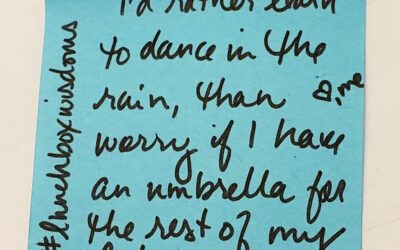 I'd rather learn
to dance in the
rain, than
♡, me
worry if I have
an umbrella for
the rest of my
#lunchboxwisdoms